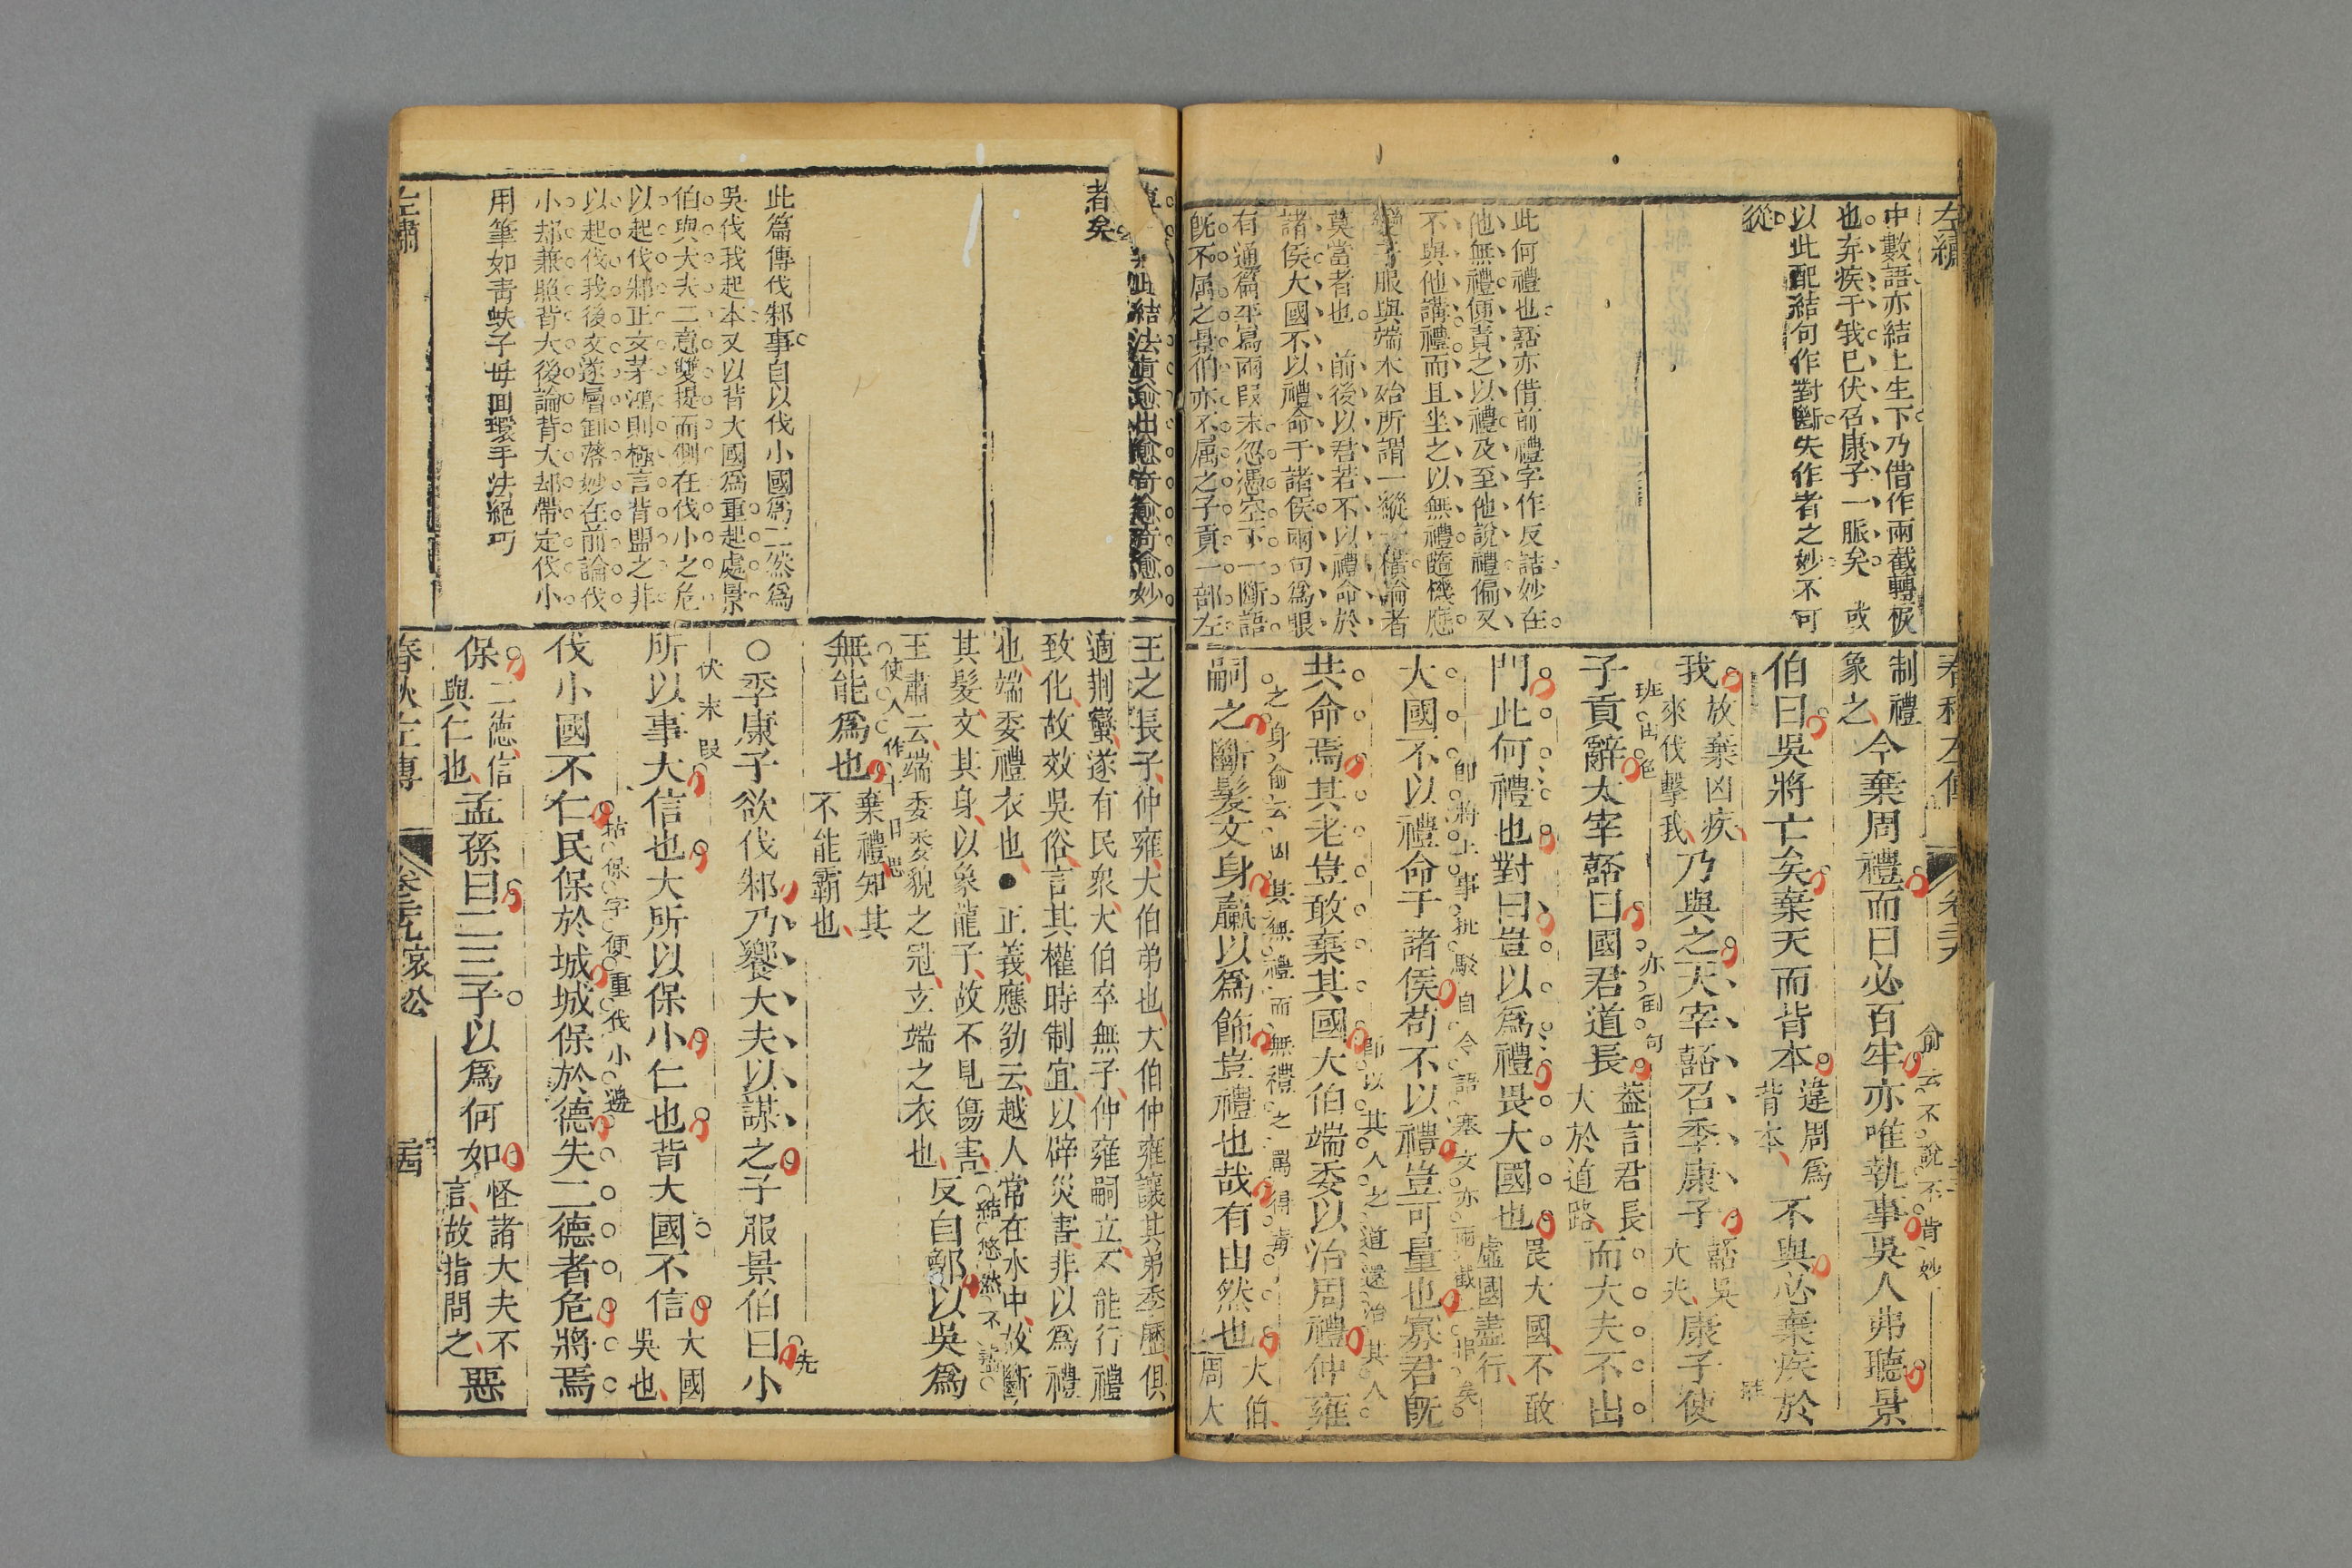 左繡
中數語亦結上生下乃借作兩截轉棙
也弃疾于我已伏召康子一脈矣　或
以此配結句作對斷失作者之妙不可
從
此何禮也語亦借前禮字作反詰妙在
他無禮便責之以禮及至他說禮偏又
不與他講禮而且坐之以無禮隨機應
變子服與端木殆所謂一縱一橫論者
莫當者也　前後以君若不以禮命於
諸侯大國不以禮命于諸侯兩句為眼
有通篇平寫兩段末忽憑空下一斷語
既不属之景伯亦不属之子貢一部左
春秋左傳
制禮
象之
今棄周禮而曰必百牢亦唯執事吳人弗聽景
俞云不說不肯妙
伯曰吳將亡矣棄天而背本
違周為
背本
不與必棄疾於
我
放棄凶疾
來伐擊我
乃與之大宰嚭召季康子
嚭吳
大夫
康子使
班出色
子貢辭太宰嚭曰國君道長
蓋言君長
大於道路
而大夫不出
亦倒句
門此何禮也對曰豈以為禮畏大國也
畏大國不敢
虛國盡行
大國不以禮命于諸侯苟不以禮豈可量也寡君既
即將上事批駁自令語塞文亦兩截一串矣
共命焉其老豈敢棄其國大伯端委以治周禮仲雍
即以其人之道還治其人
之身俞云因其無禮而無禮之罵得毒
嗣之斷髮文身羸以為飾豈禮也哉有由然也
大伯
周大
結法真愈出愈奇愈奇愈妙
者矣
此篇傳伐邾事自以伐小國為主然為
吳伐我起本又以背大國為重起處景
伯與大夫二意雙提而側在伐小之危
以起伐邾正文茅鴻則極言背盟之非
以起伐我後文遂層卸落妙在前論伐
小却兼照背大後論背大却帶定伐小
用筆如青蚨子母回環手法絕巧
王之長子仲雍大伯弟也大伯仲雍讓其弟季歷俱
適荆蠻遂有民衆大伯卒無子仲雍嗣立不能行禮
致化故效吳俗言其權時制宜以辟災害非以為禮
也端委禮衣也●正義應劭云越人常在水中故斷
其髮文其身以象龍子故不見傷害
王肅云端委委貌之冠玄端之衣也
反自鄫以吳為
結悠然不盡
無能為也
棄禮知其
不能霸也
使人作十日思
○季康子欲伐邾乃饗大夫以謀之子服景伯曰小
先
伏末段
所以事大信也大所以保小仁也背大國不信
大國
吳也
伐小國不仁民保於城城保於德失二德者危將焉
拈保字便重伐小邊
保
二德信
與仁也
孟孫曰二三子以為何如
怪諸大夫不
言故指問之
惡
左繡
春秋左傳
哀公